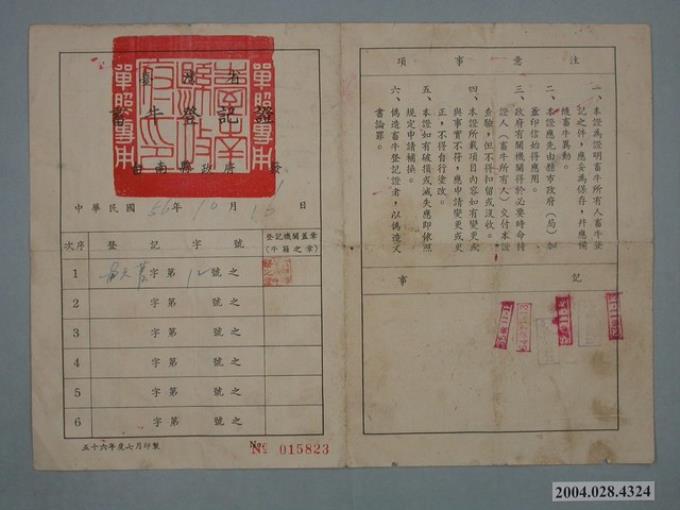 臺灣省
畜牛登記證
臺南縣政府發
中華民國56年10月16日
次序 登記字號 登記機關蓋章(牛籍之章)
1 字第12號之
2 字第 號之
3 字第 號之
4 字第 號之
5 字第 號之
6 字第 號之
五十六年度七月印製
No 015823
注意事項
一、本證為證明畜牛所有人畜牛登
記之件,應妥為保存,并應備
隨畜牛異動。
二、本證應先由縣市政府(局)加
蓋印信始得應用。
三、政府有關機關得於必要時命持
證人(畜牛所有人)交付本證
查驗,但不得扣留或沒收。
四、本證所載項目內容如有變更或
與事實不符,應申請變更或更
正,不得自行塗改。
五、本證如有破損或減失應即依照
規定申請補換。
六、偽造畜牛登記證者,以偽造文
書論罪。
記事
單照專用
單照專用
2004.028.4324